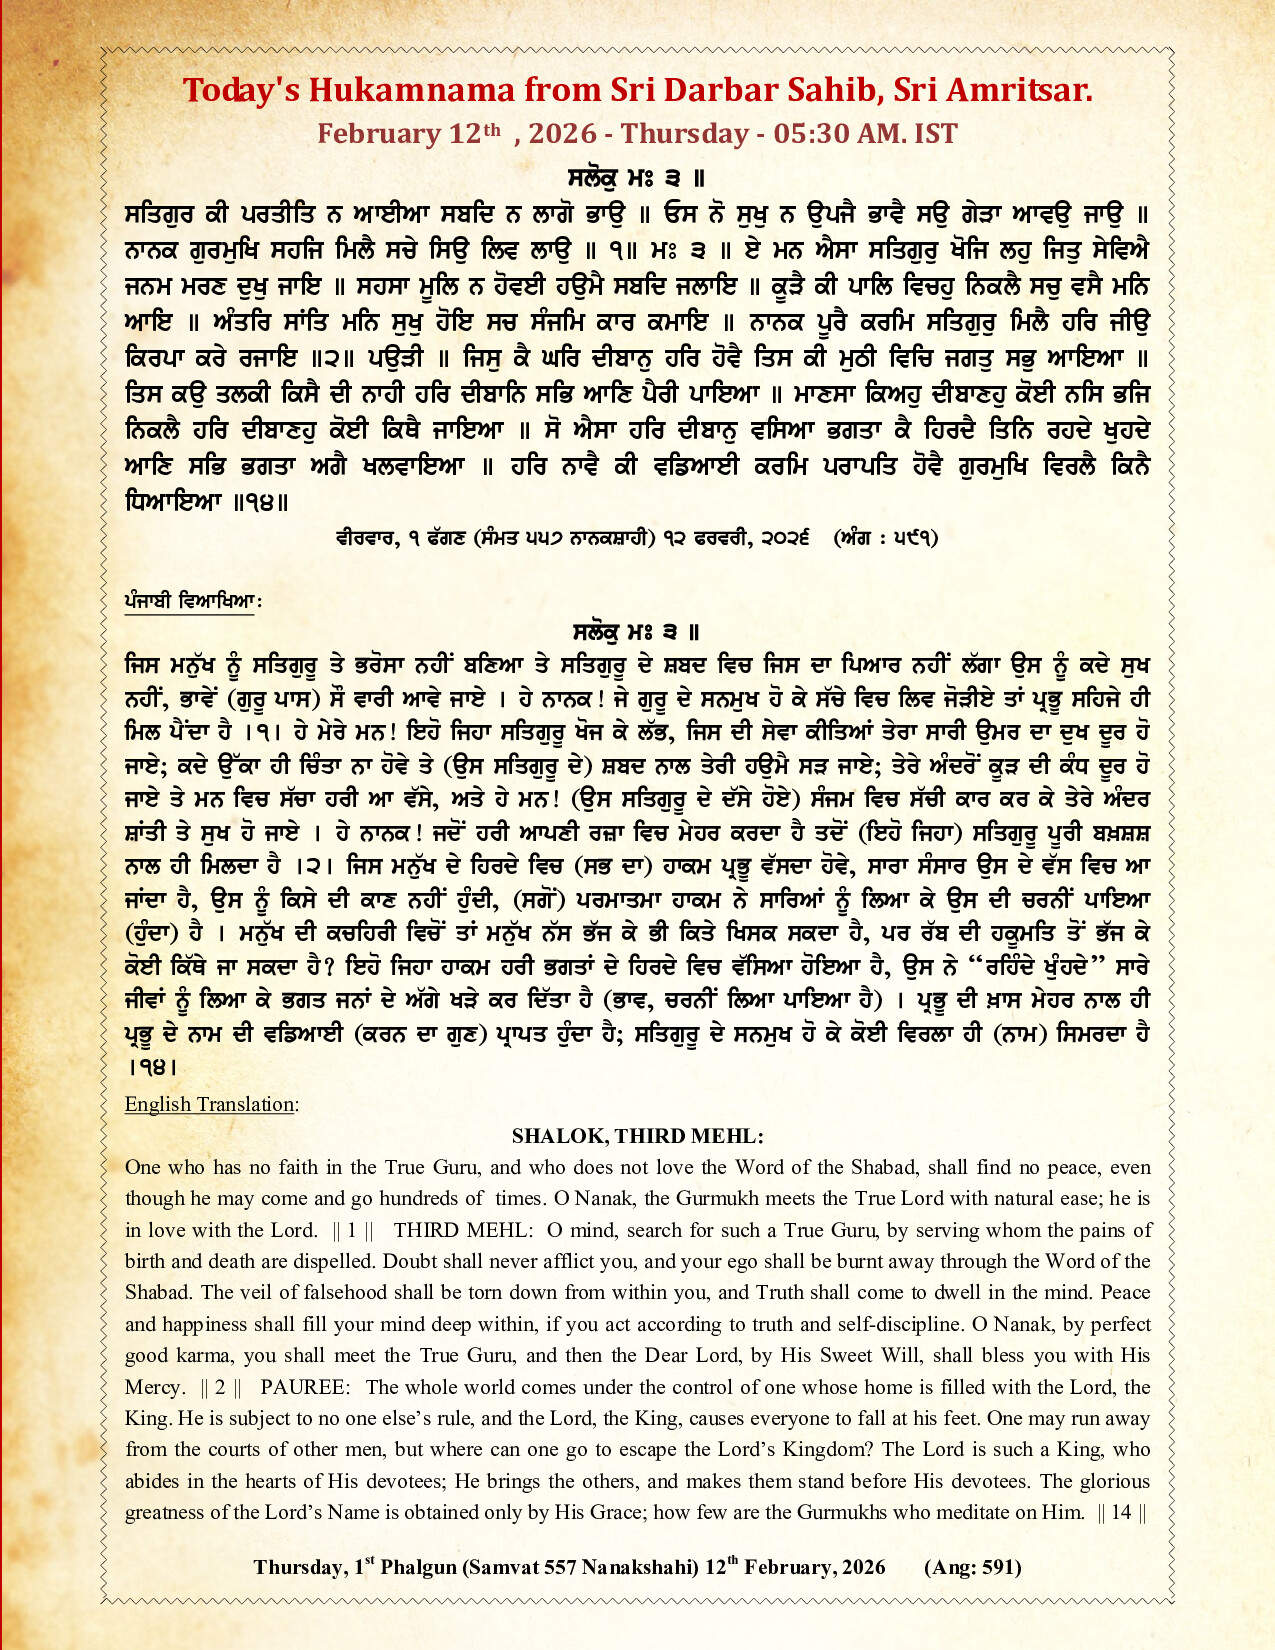 Today's Hukamnama from Sri Darbar Sahib, Sri Amritsar.
February 12th , 2026 - Thursday - 05:30 AM. IST
ਸਲੋਕੁ ਮਃ ੩ ॥
ਸਤਿਗੁਰ ਕੀ ਪਰਤੀਤਿ ਨ ਆਈਆ ਸਬਦਿ ਨ ਲਾਗੋ ਭਾਉ ॥ ਓਸ ਨੋ ਸੁਖੁ ਨ ਉਪਜੈ ਭਾਵੈ ਸਉ ਗੇੜਾ ਆਵਉ ਜਾਉ ॥
ਨਾਨਕ ਗੁਰਮੁਖਿ ਸਹਜਿ ਮਿਲੈ ਸਚੇ ਸਿਉ ਲਿਵ ਲਾਉ ॥ ੧॥ ਮਃ ੩ ॥ ਏ ਮਨ ਐਸਾ ਸਤਿਗੁਰੁ ਖੋਜਿ ਲਹੁ ਜਿਤੁ ਸੇਵਿਐ
ਜਨਮ ਮਰਣ ਦੁਖੁ ਜਾਇ ॥ ਸਹਸਾ ਮੂਲਿ ਨ ਹੋਵਈ ਹਉਮੈ ਸਬਦਿ ਜਲਾਇ ॥ ਕੂੜੈ ਕੀ ਪਾਲਿ ਵਿਚਹੁ ਨਿਕਲੈ ਸਚੁ ਵਸੈ ਮਨਿ
ਆਇ ॥ ਅੰਤਰਿ ਸਾਂਤਿ ਮਨਿ ਸੁਖੁ ਹੋਇ ਸਚ ਸੰਜਮਿ ਕਾਰ ਕਮਾਇ ॥ ਨਾਨਕ ਪੂਰੈ ਕਰਮਿ ਸਤਿਗੁਰੁ ਮਿਲੈ ਹਰਿ ਜੀਉ
ਕਿਰਪਾ ਕਰੇ ਰਜਾਇ ॥੨॥ ਪਉੜੀ ॥ ਜਿਸੁ ਕੈ ਘਰਿ ਦੀਬਾਨੁ ਹਰਿ ਹੋਵੈ ਤਿਸ ਕੀ ਮੁਠੀ ਵਿਚਿ ਜਗਤੁ ਸਭੁ ਆਇਆ ॥
ਤਿਸ ਕਉ ਤਲਕੀ ਕਿਸੈ ਦੀ ਨਾਹੀ ਹਰਿ ਦੀਬਾਨਿ ਸਭਿ ਆਣਿ ਪੈਰੀ ਪਾਇਆ ॥ ਮਾਣਸਾ ਕਿਅਹੁ ਦੀਬਾਣਹੁ ਕੋਈ ਨਸਿ ਭਜਿ
ਨਿਕਲੈ ਹਰਿ ਦੀਬਾਣਹੁ ਕੋਈ ਕਿਥੈ ਜਾਇਆ ॥ ਸੋ ਐਸਾ ਹਰਿ ਦੀਬਾਨੁ ਵਸਿਆ ਭਗਤਾ ਕੈ ਹਿਰਦੈ ਤਿਨਿ ਰਹਦੇ ਖੁਹਦੇ
ਆਣਿ ਸਭਿ ਭਗਤਾ ਅਗੈ ਖਲਵਾਇਆ ॥ ਹਰਿ ਨਾਵੈ ਕੀ ਵਡਿਆਈ ਕਰਮਿ ਪਰਾਪਤਿ ਹੋਵੈ ਗੁਰਮੁਖਿ ਵਿਰਲੈ ਕਿਨੈ
ਧਿਆਇਆ ॥੧੪॥
ਵੀਰਵਾਰ, ੧ ਫੱਗਣ (ਸੰਮਤ ੫੫੭ ਨਾਨਕਸ਼ਾਹੀ) ੧੨ ਫਰਵਰੀ, ੨੦੨੬ (ਅੰਗ : ੫੯੧)
ਪੰਜਾਬੀ ਵਿਆਖਿਆ:
ਸਲੋਕੁ ਮਃ ੩ ॥
ਜਿਸ ਮਨੁੱਖ ਨੂੰ ਸਤਿਗੁਰੂ ਤੇ ਭਰੋਸਾ ਨਹੀਂ ਬਣਿਆ ਤੇ ਸਤਿਗੁਰੂ ਦੇ ਸ਼ਬਦ ਵਿਚ ਜਿਸ ਦਾ ਪਿਆਰ ਨਹੀਂ ਲੱਗਾ ਉਸ ਨੂੰ ਕਦੇ ਸੁਖ
ਨਹੀਂ, ਭਾਵੇਂ (ਗੁਰੂ ਪਾਸ) ਸੌ ਵਾਰੀ ਆਵੇ ਜਾਏ । ਹੇ ਨਾਨਕ! ਜੇ ਗੁਰੂ ਦੇ ਸਨਮੁਖ ਹੋ ਕੇ ਸੱਚੇ ਵਿਚ ਲਿਵ ਜੋੜੀਏ ਤਾਂ ਪ੍ਰਭੂ ਸਹਿਜੇ ਹੀ
ਮਿਲ ਪੈਂਦਾ ਹੈ ।੧। ਹੇ ਮੇਰੇ ਮਨ! ਇਹੋ ਜਿਹਾ ਸਤਿਗੁਰੂ ਖੋਜ ਕੇ ਲੱਭ, ਜਿਸ ਦੀ ਸੇਵਾ ਕੀਤਿਆਂ ਤੇਰਾ ਸਾਰੀ ਉਮਰ ਦਾ ਦੁਖ ਦੂਰ ਹੋ
ਜਾਏ; ਕਦੇ ਉੱਕਾ ਹੀ ਚਿੰਤਾ ਨਾ ਹੋਵੇ ਤੇ (ਉਸ ਸਤਿਗੁਰੂ ਦੇ) ਸ਼ਬਦ ਨਾਲ ਤੇਰੀ ਹਉਮੈ ਸੜ ਜਾਏ; ਤੇਰੇ ਅੰਦਰੋਂ ਕੂੜ ਦੀ ਕੰਧ ਦੂਰ ਹੋ
ਜਾਏ ਤੇ ਮਨ ਵਿਚ ਸੱਚਾ ਹਰੀ ਆ ਵੱਸੇ, ਅਤੇ ਹੇ ਮਨ! (ਉਸ ਸਤਿਗੁਰੂ ਦੇ ਦੱਸੇ ਹੋਏ) ਸੰਜਮ ਵਿਚ ਸੱਚੀ ਕਾਰ ਕਰ ਕੇ ਤੇਰੇ ਅੰਦਰ
ਸ਼ਾਂਤੀ ਤੇ ਸੁਖ ਹੋ ਜਾਏ । ਹੇ ਨਾਨਕ! ਜਦੋਂ ਹਰੀ ਆਪਣੀ ਰਜ਼ਾ ਵਿਚ ਮੇਹਰ ਕਰਦਾ ਹੈ ਤਦੋਂ (ਇਹੋ ਜਿਹਾ) ਸਤਿਗੁਰੂ ਪੂਰੀ ਬਖ਼ਸ਼ਸ਼
ਨਾਲ ਹੀ ਮਿਲਦਾ ਹੈ ।੨। ਜਿਸ ਮਨੁੱਖ ਦੇ ਹਿਰਦੇ ਵਿਚ (ਸਭ ਦਾ) ਹਾਕਮ ਪ੍ਰਭੂ ਵੱਸਦਾ ਹੋਵੇ, ਸਾਰਾ ਸੰਸਾਰ ਉਸ ਦੇ ਵੱਸ ਵਿਚ ਆ
ਜਾਂਦਾ ਹੈ, ਉਸ ਨੂੰ ਕਿਸੇ ਦੀ ਕਾਣ ਨਹੀਂ ਹੁੰਦੀ, (ਸਗੋਂ) ਪਰਮਾਤਮਾ ਹਾਕਮ ਨੇ ਸਾਰਿਆਂ ਨੂੰ ਲਿਆ ਕੇ ਉਸ ਦੀ ਚਰਨੀਂ ਪਾਇਆ
(ਹੁੰਦਾ) ਹੈ । ਮਨੁੱਖ ਦੀ ਕਚਹਿਰੀ ਵਿਚੋਂ ਤਾਂ ਮਨੁੱਖ ਨੱਸ ਭੱਜ ਕੇ ਭੀ ਕਿਤੇ ਖਿਸਕ ਸਕਦਾ ਹੈ, ਪਰ ਰੱਬ ਦੀ ਹਕੂਮਤਿ ਤੋਂ ਭੱਜ ਕੇ
ਕੋਈ ਕਿੱਥੇ ਜਾ ਸਕਦਾ ਹੈ? ਇਹੋ ਜਿਹਾ ਹਾਕਮ ਹਰੀ ਭਗਤਾਂ ਦੇ ਹਿਰਦੇ ਵਿਚ ਵੱਸਿਆ ਹੋਇਆ ਹੈ, ਉਸ ਨੇ “ਰਹਿੰਦੇ ਖੁੰਹਦੇ” ਸਾਰੇ
ਜੀਵਾਂ ਨੂੰ ਲਿਆ ਕੇ ਭਗਤ ਜਨਾਂ ਦੇ ਅੱਗੇ ਖੜੇ ਕਰ ਦਿੱਤਾ ਹੈ (ਭਾਵ, ਚਰਨੀਂ ਲਿਆ ਪਾਇਆ ਹੈ) । ਪ੍ਰਭੂ ਦੀ ਖ਼ਾਸ ਮੇਹਰ ਨਾਲ ਹੀ
ਪ੍ਰਭੂ ਦੇ ਨਾਮ ਦੀ ਵਡਿਆਈ (ਕਰਨ ਦਾ ਗੁਣ) ਪ੍ਰਾਪਤ ਹੁੰਦਾ ਹੈ; ਸਤਿਗੁਰੂ ਦੇ ਸਨਮੁਖ ਹੋ ਕੇ ਕੋਈ ਵਿਰਲਾ ਹੀ (ਨਾਮ) ਸਿਮਰਦਾ ਹੈ
।੧੪।
English Translation:
SHALOK, THIRD MEHL:
One who has no faith in the True Guru, and who does not love the Word of the Shabad, shall find no peace, even
though he may come and go hundreds of times. O Nanak, the Gurmukh meets the True Lord with natural ease; he is
in love with the Lord. || 1 || THIRD MEHL: O mind, search for such a True Guru, by serving whom the pains of
birth and death are dispelled. Doubt shall never afflict you, and your ego shall be burnt away through the Word of the
Shabad. The veil of falsehood shall be torn down from within you, and Truth shall come to dwell in the mind. Peace
and happiness shall fill your mind deep within, if you act according to truth and self-discipline. O Nanak, by perfect
good karma, you shall meet the True Guru, and then the Dear Lord, by His Sweet Will, shall bless you with His
Mercy. || 2 || PAUREE: The whole world comes under the control of one whose home is filled with the Lord, the
King. He is subject to no one else’s rule, and the Lord, the King, causes everyone to fall at his feet. One may run away
from the courts of other men, but where can one go to escape the Lord’s Kingdom? The Lord is such a King, who
abides in the hearts of His devotees; He brings the others, and makes them stand before His devotees. The glorious
greatness of the Lord’s Name is obtained only by His Grace; how few are the Gurmukhs who meditate on Him. || 14 ||
Thursday, 1st Phalgun (Samvat 557 Nanakshahi) 12th February, 2026 (Ang: 591)